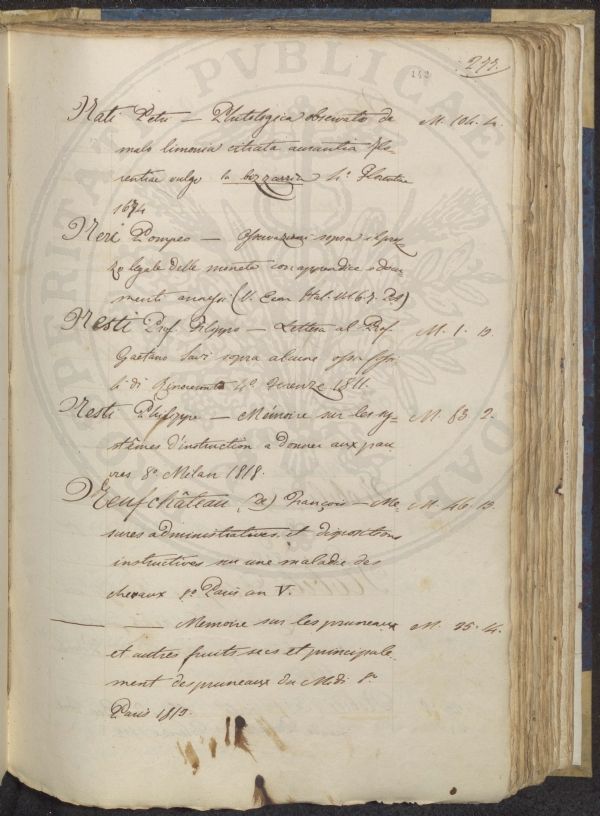 277.
Nati Petri — Phitologica observatio de M. 104. 4.
malo limonia citrata aurantia Flo-
rentiae vulgo la bizzarria 4.° Florentiae
1674
Neri Pompeo — Osservazioni sopra il prez-
zo legale delle monete con appendice e docu-
menti annessi (V. Econ. Ital.
Nesti Prof. Filippo — Lettera al Prof. M. 1. 13.
Gaetano Savi sopra alcune ossa fossi-
li di Rinoceronte 4.° Firenze 1811.
Nesti Philippe — Mémoire sur les sy- M. 83. 2.
stêmes d'instruction a donner aux pau-
vres 8.° Milan 1818.
Neufchâteau (de) François — Me- M. 46. 13.
sures administratives et dispositions
instructives sur une maladie des
chevaux 8.° Paris an V.
— Memoire sur les pruneaux M. 25. 14.
et autres fruits secs et principale-
ment des pruneaux du Midi 8.°
Paris 1813.